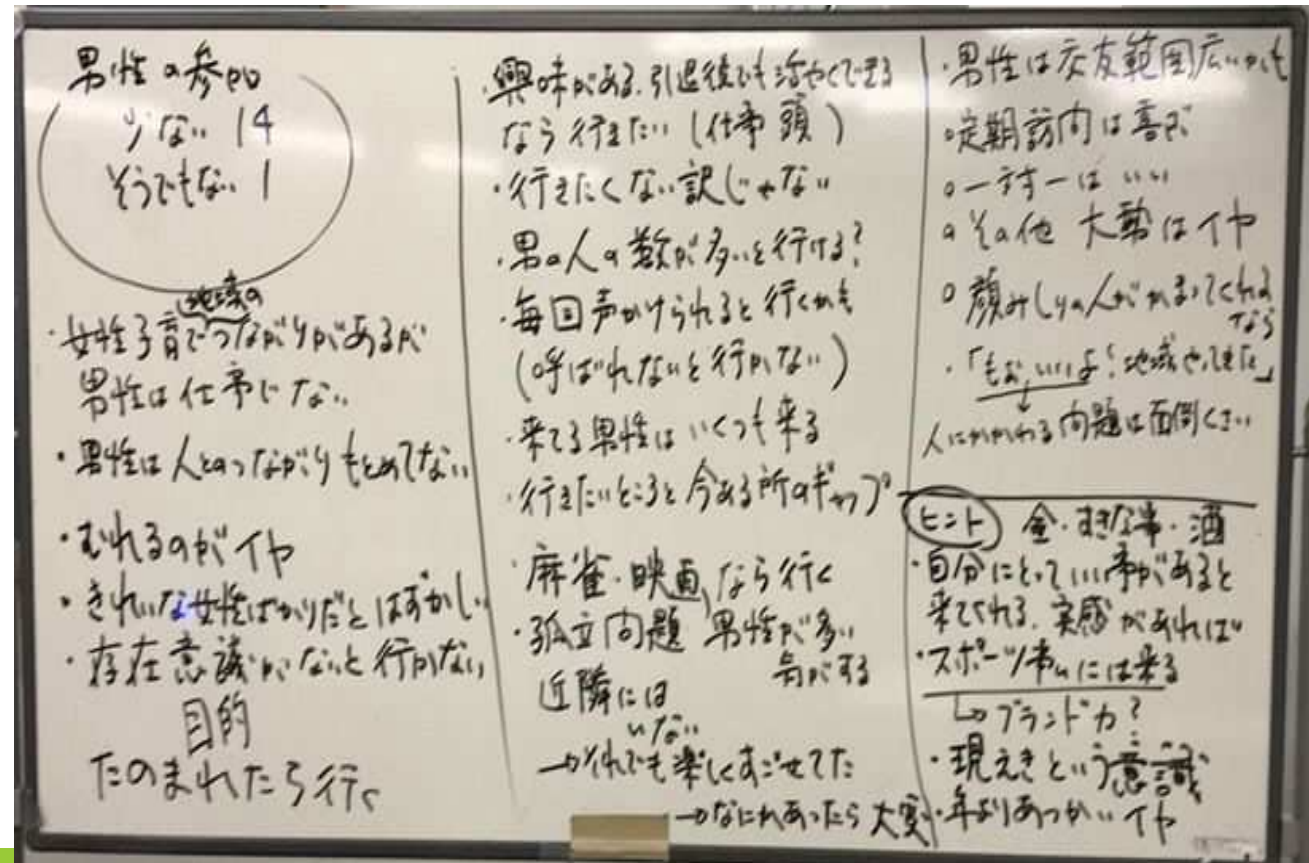 男性の参加
少ない 14
そうでもない 1
地域の
・女性子育でつながりがあるが
男性は仕事じない
・男性は人とのつながりもとめてない
・むれるのがイヤ
・きれいな女性ばかりだとはずかしい
・存在意識がないと行かない
目的
たのまれたら行く
・興味がある、引退後でも活やくできる
なら行きたい (仕事 頭)
・行きたくない訳じゃない
・男の人の数が多いと行ける?
・毎回声かけられると行くかも
(呼ばれないと行かない)
・来てる男性はいくつも来る
・行きたいところと今ある所のギャップ
・麻雀・映画、なら行く
・孤立問題 男性が多い
気がする
近隣には
いない
→それでも楽しくすごせてた
→なにかあったら大変
・男性は交友範囲広いかも
○定期訪問は喜ぶ
○一対一はいい
○その他 大勢はイヤ
○顔みしりの人がかまってくれる
なら
・「もぉいいよ!地域やってきた」
人にかかわる問題は面倒くさい
ヒント 金・すきな事・酒
・自分にとっていい事があると
来てくれる、実感があれば
・スポーツジムには来る
↳ブランド力?
・現えきという意識
・年よりあつかいイヤ